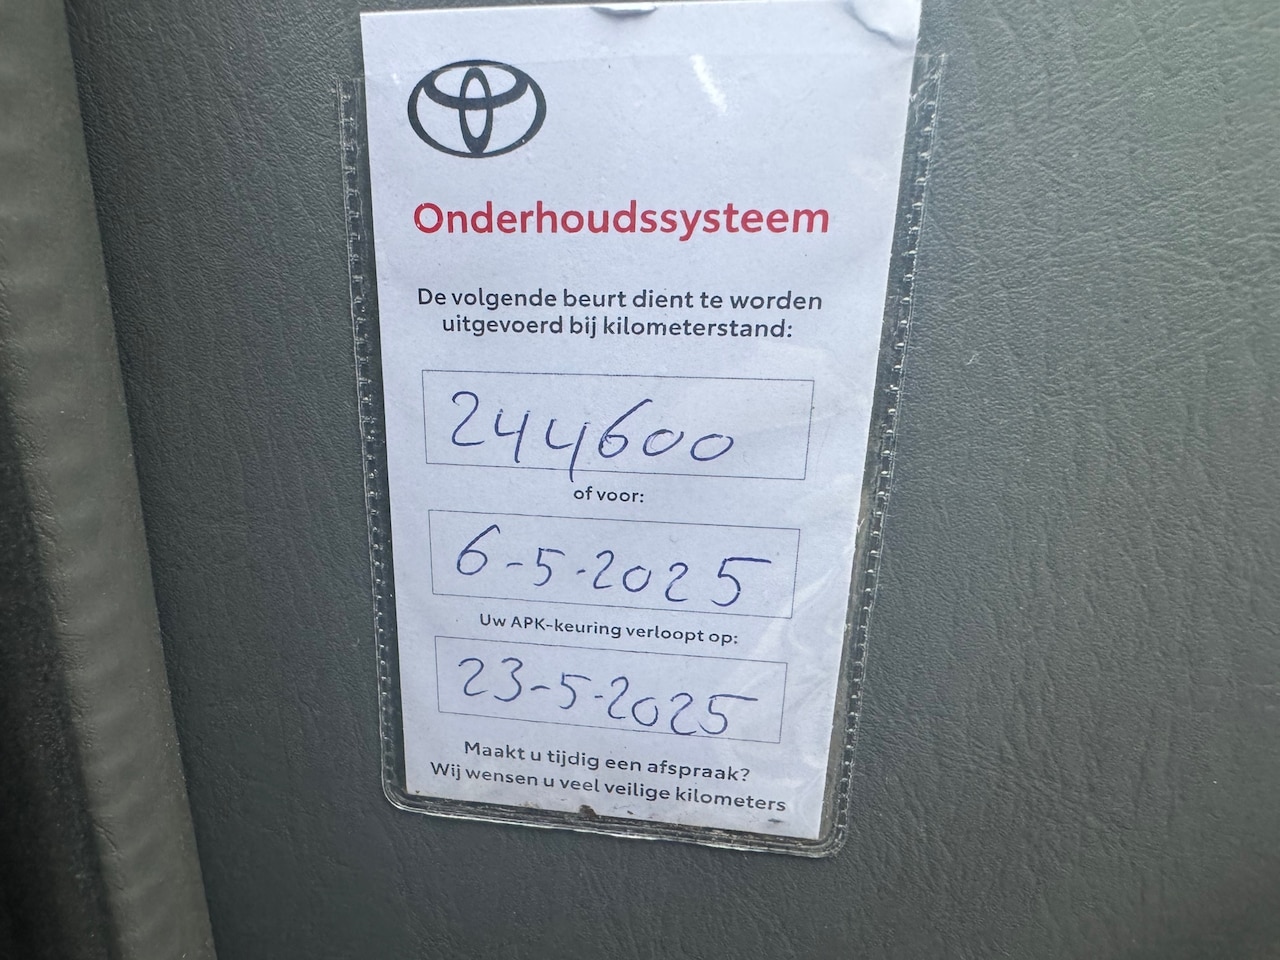 Onderhoudssysteem
De volgende beurt dient te worden
uitgevoerd bij kilometerstand:
244600
of voor:
6-5-2025
Uw APK-keuring verloopt op:
23-5-2025
Maakt u tijdig een afspraak?
Wij wensen u veel veilige kilometers